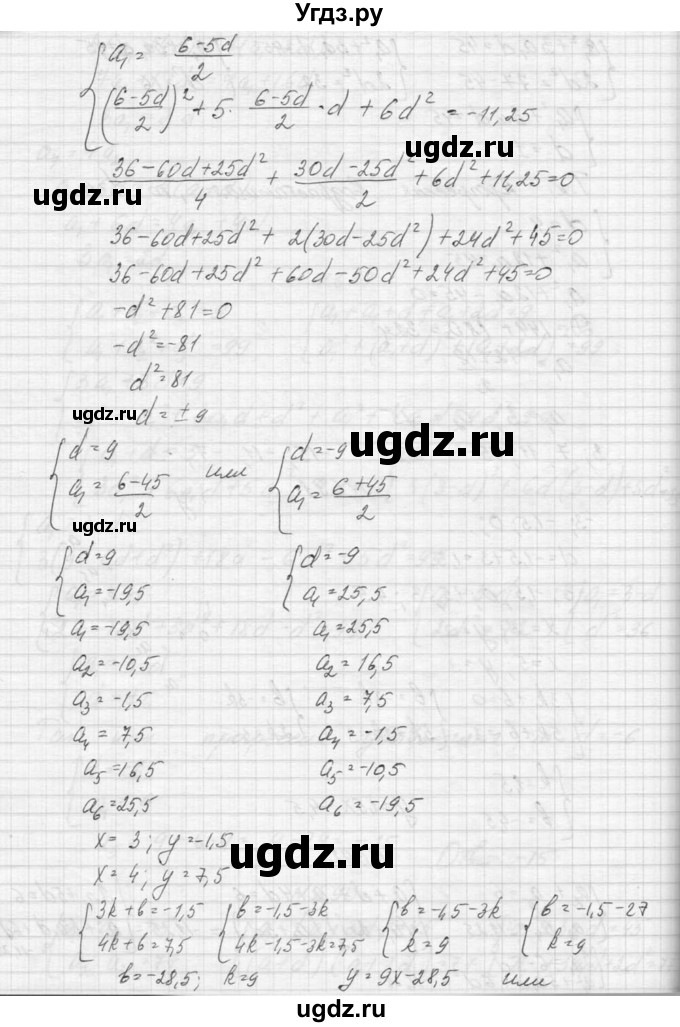 Угдз.ру
{ a₁ = (6-5d)/2
{ ((6-5d)/2)² + 5 · (6-5d)/2 · d + 6d² = -11,25
(36-60d+25d²)/4 + (30d-25d²)/2 + 6d² + 11,25=0
ugdz.ru ugdz.ru
36-60d+25d² + 2(30d-25d²) + 24d² + 45=0
36-60d+25d² + 60d-50d² + 24d² + 45=0
-d² + 81=0
-d² = -81
d² = 81
ugdz.ru d = ± 9
ugdz.ru
{ d = 9 или { d = -9
{ a₁ = (6-45)/2 { a₁ = (6+45)/2
ugdz.ru
{ d = 9 { d = -9
{ a₁ = -19,5 { a₁ = 25,5
a₁ = -19,5 a₁ = 25,5
a₂ = -10,5 a₂ = 16,5
ugdz.ru
a₃ = -1,5 a₃ = 7,5
a₄ = 7,5 a₄ = -1,5
a₅ = 16,5 a₅ = -10,5
a₆ = 25,5 a₆ = -19,5
x = 3; y = -1,5
ugdz.ru
x = 4; y = 7,5
{ 3k+b = -1,5 { b = -1,5-3k { b = -1,5-3k { b = -1,5-27
{ 4k+b = 7,5 { 4k-1,5-3k = 7,5 { k = 9 { k = 9
b = -28,5; k = 9 y = 9x-28,5 или
ugdz.ru